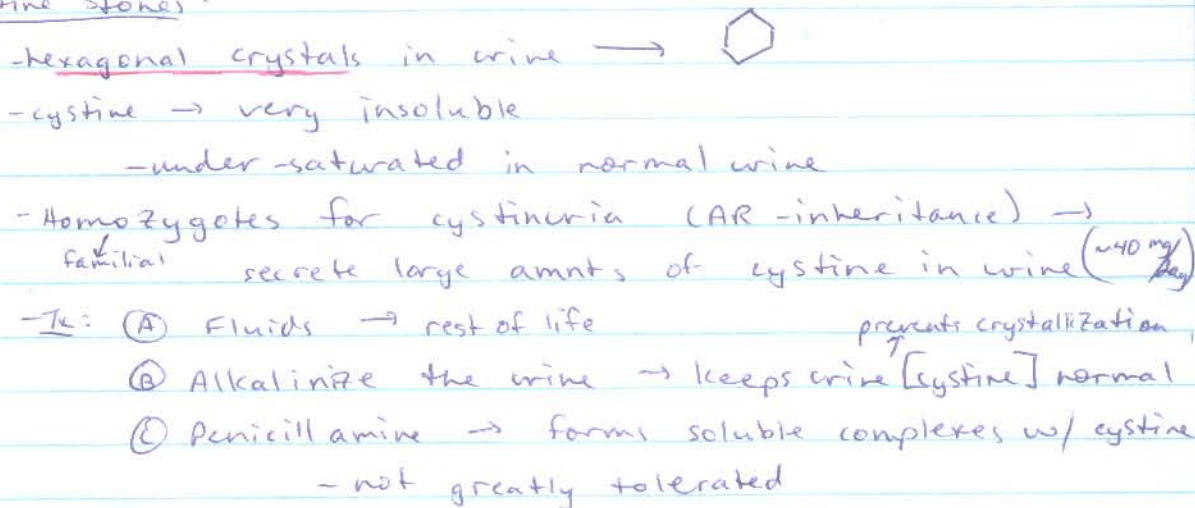 stones
-hexagonal crystals in urine →
-cystine → very insoluble
-under-saturated in normal urine
-Homozygotes for cystinuria (AR-inheritance) →
familial secrete large amnts of cystine in urine (~40 mg/Day)
-Tx: Ⓐ Fluids → rest of life
prevents crystallization
Ⓑ Alkalinize the urine → keeps urine [cystine] normal
Ⓒ Penicillamine → forms soluble complexes w/ cystine
- not greatly tolerated